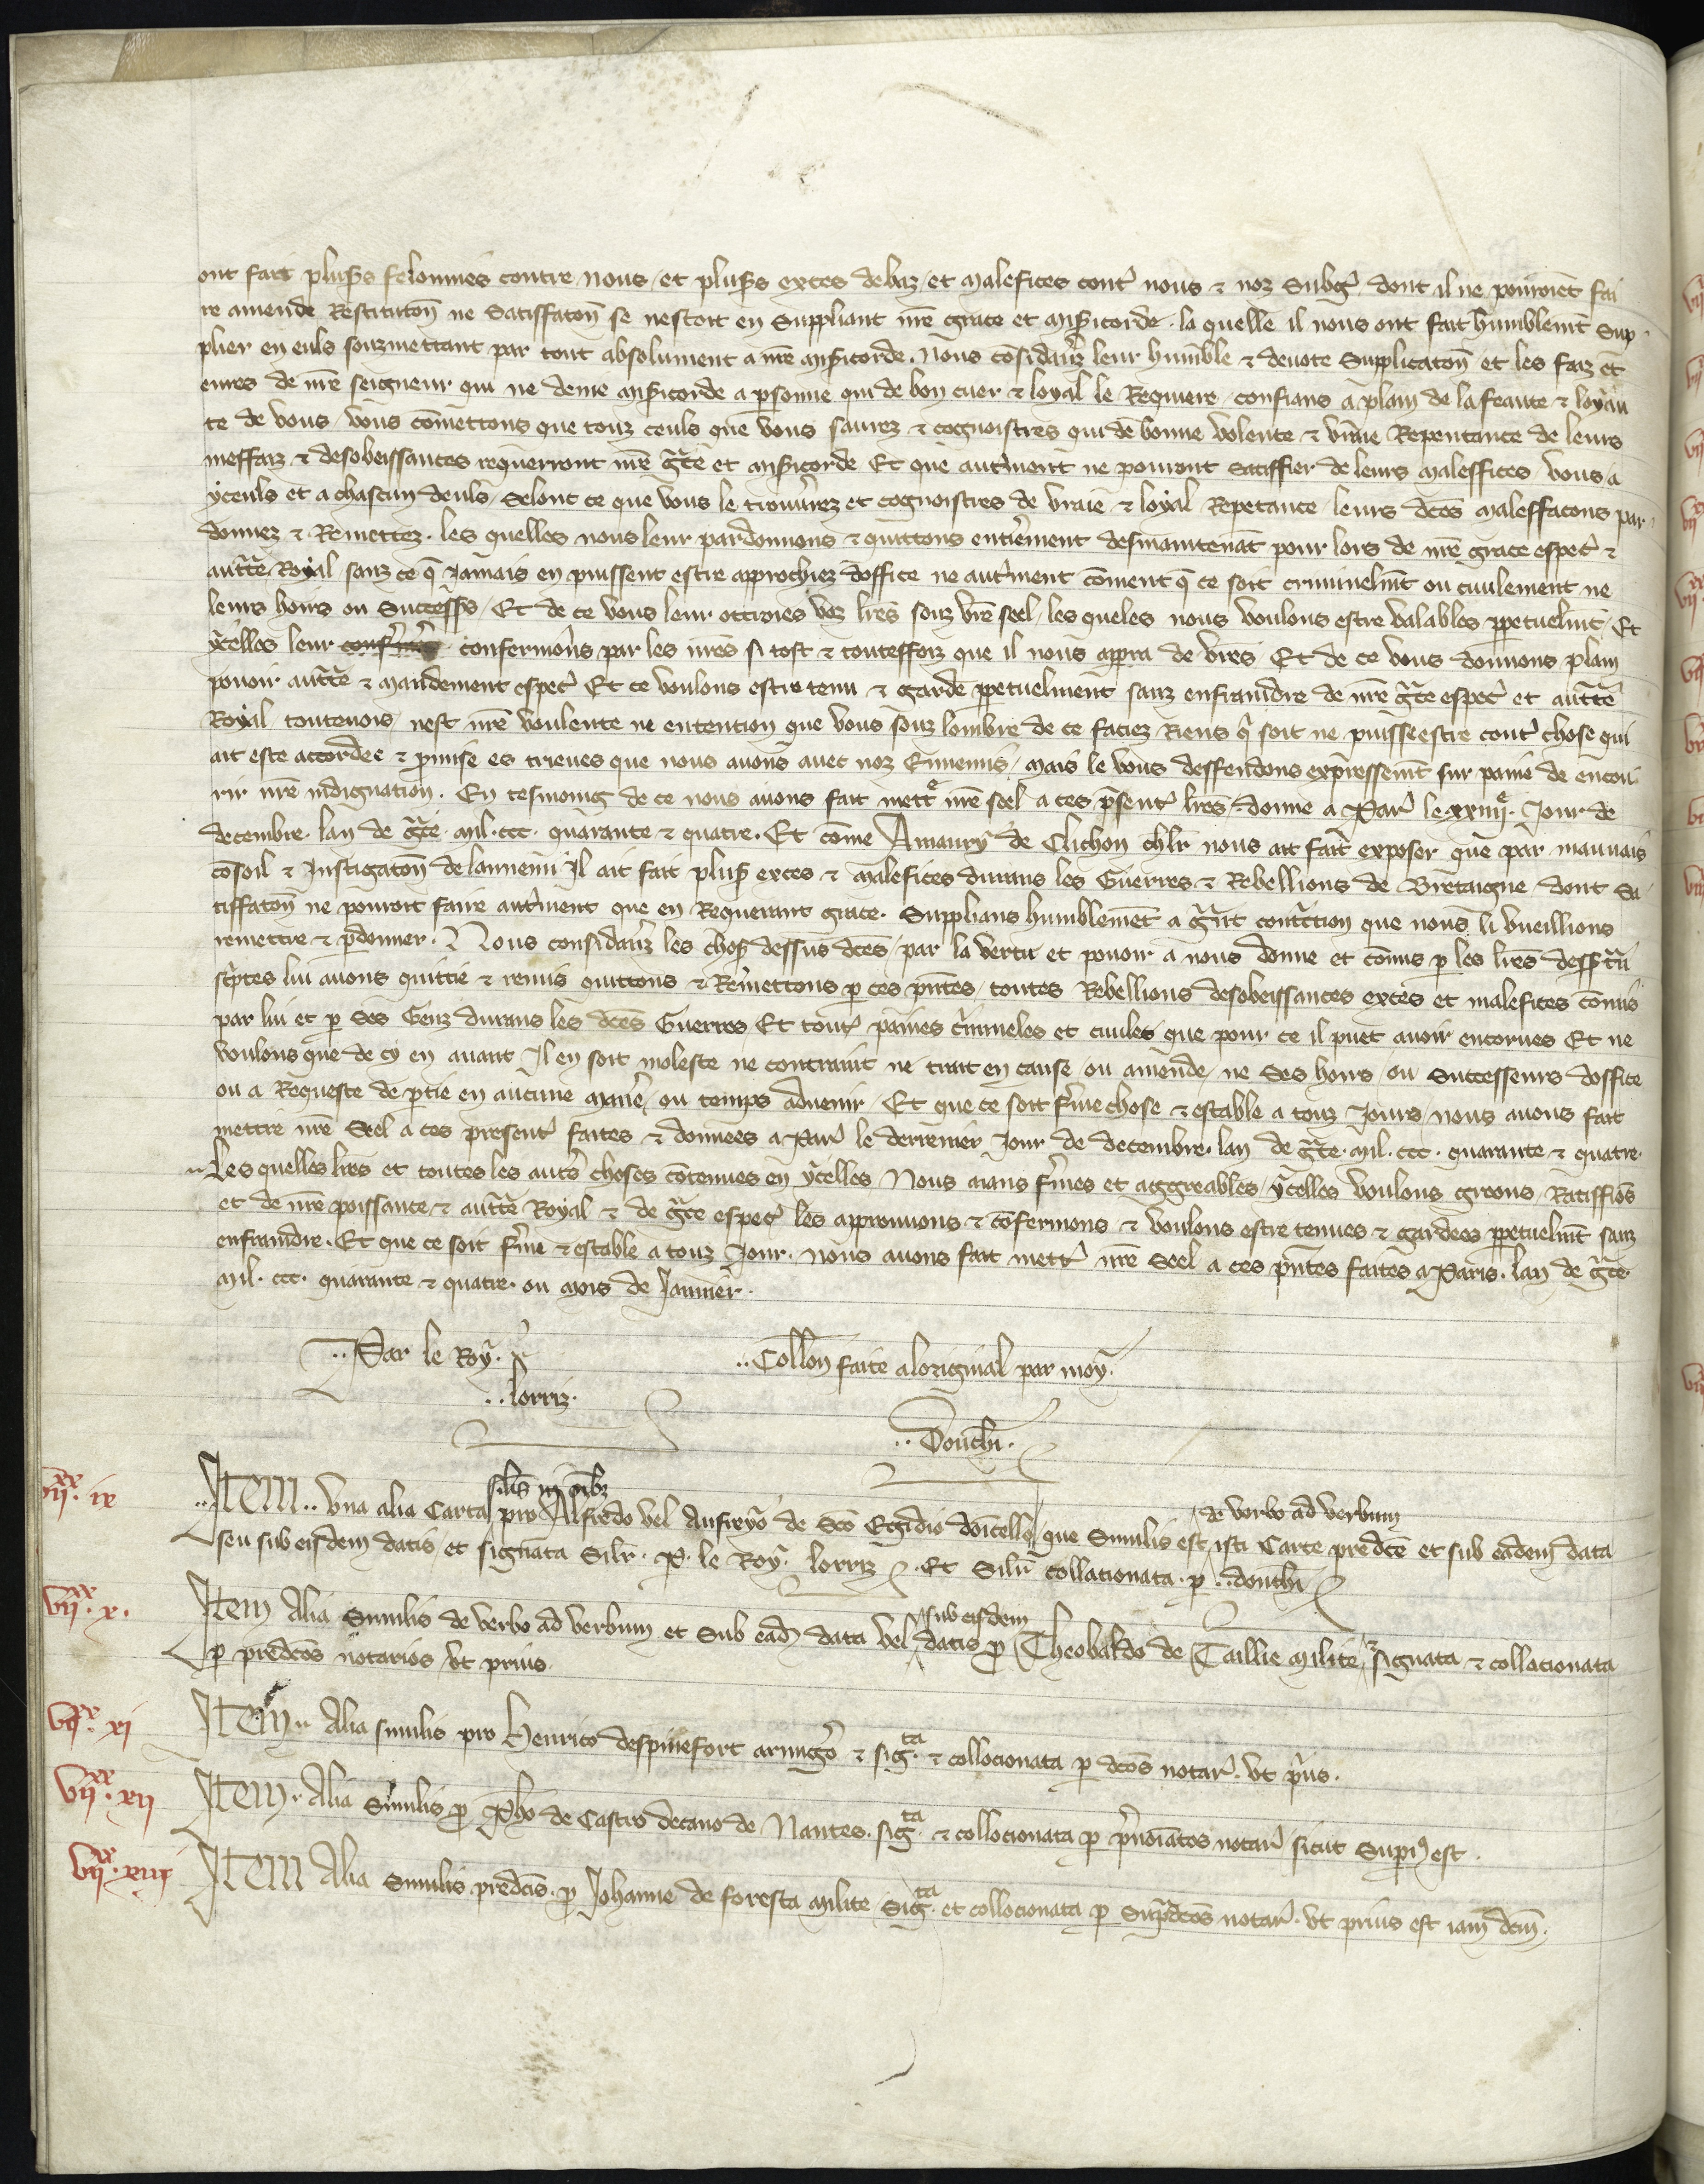 ont fait plus̃s felonnies contre nous et plus̃s exces debaz et malefices cont̾ nous ⁊ noz Subg̾ dont il ne pouroiẽt fai
re amende Restitutoñ ne Satisfatoñ se nestoit en Suppliant nr̃e grace et mis̃icorde. la quelle il nous ont fait humblemt̃ Sup
plier en euls souzmettant par tout absolument a nr̃e mis̃icorde. Nous cõsiderãz leur humble ⁊ devote Supplicatoñ et les faiz et
euvres de nr̃e seigneur qui ne denie mis̃icorde a personne qui de bon cuer ⁊ loyal le Requiere confians a plain de la feaute ⁊ loyau
te de vous vous cõmettons que touz ceuls que vous saurez ⁊ cognoistres qui de bonne volente ⁊ vraie Repentance de leurs
meffaiz ⁊ desobeissances requerront nr̃e gr̃ce et mis̃icorde Et que autrement ne pouront satisfier de leurs maleffices vous a
yceuls et a chascun deuls selonc ce que vous le trouverez et cognoistres de vraie ⁊ loyal Repetance leurs dc̃es maleffacons par
donnez ⁊ Remettez. les quelles nous leur pardonnons ⁊ quittons entierement desmaintenãt pour lors de nr̃e grace espec̾ ⁊
auct̃te Royal sanz ce q̃ Jamais en puissent estre approchiez doffice ne autrement cõment q̃ ce soit criminelmt̃ ou civilement ne
leurs hoirs ou Success̾s Et de ce vous leur ottroies voz lrẽs souz vr̃e seel les queles nous voulons estre valables ꝑpetuelmt̃ Et
ycelles leur confermõns par les nr̃es si tost ⁊ toutesfoiz que il nous appra de vr̃es Et de ce vous donnons plain
povoir auct̃te ⁊ mandement espec̾ Et ce voulons estre tenu ⁊ garde ꝑpetuelment sanz enfraindre de nr̃e gr̃ce espec̾ et auct̃te
Royal toutevois nest nr̃e voulente ne entention que vous souz lombre de ce faciez Riens q̃ soit ne puisse estre cont̾ chose qui
ait este accordee ⁊ promise es trieves que nous avons avec noz Ennemis mais le vous deffendons expressemt̃ sur paine de encou
rir nr̃e indignation. En tesmoing de ce nous avons fait mett̾e nr̃e seel a ces presẽt̾ lrẽs donne a Par̾ le xxiiije. Jour de
decembre. lan de gr̃ce mil. ccc. quarante ⁊ quatre. Et cõme Amaury de Clichon chlr̃ nous ait fait exposer que par mauvais
cõsoil ⁊ Instigatoñ de lannemi Il ait fait plus̾ exces ⁊ malefices durans les Guerres ⁊ Rebellions de Bretaigne dont Sa
tiffatoñ ne pouroit faire autrement que en Requerant grace. Supplians humblemẽt a gr̃nt contrition que nous li vueillions
remettre ⁊ ꝑdonner. Nous considerãz les chos̾ dessus dc̃es par la vertu et povoir a nous donne et cõmis ꝑ les lrẽs dess̾ tr̃n
sc̾ptes lui avons quittie ⁊ remis quittons ⁊ Remettons ꝑ ces pñtes toutes Rebellions desobeissances exces et malefices cõmis
par lui et ꝑ Ses Genz durans les dc̃es Guerres Et tout̾ paines c̾imineles et civiles que pour ce il puet avoir encorues Et ne
voulons que de cy en avant Il en soit moleste ne contraint ne trait en cause ou amende ne Ses hoirs ou Successeurs doffice
ou a Requeste de ꝑtie en aucune mañe ou temps advenir Et que ce soit f̾me chose ⁊ estable a touz Jours nous avons fait
mettre nr̃e Seel a ces present̾ faites ⁊ donnees a Par̾ le derrenier Jour de decembre. lan de gr̃ce. mil. ccc. quarante ⁊ quatre.
Les quelles lrẽs et toutes les autr̾s choses cõtenues en ycelles Nous aians f̾mes et aggreables ycelles voulons greons Ratiffiõs
et de nr̃e poissance ⁊ auct̃te Royal ⁊ de gr̃ce espec̾ les approuvons ⁊ cõfermons ⁊ voulons estre tenues ⁊ gardees ꝑpetuelmt̃ sanz
enfraindre. Et que ce soit f̾me ⁊ estable a touz Jour. nous avons fait mettr̾ nr̃e Seel a ces pñtes faites a Paris. lan de gr̃ce
mil. ccc. quarante ⁊ quatre. ou mois de Janvier.
..Par le Roy.
..lorriz.
..Collon̄ faite a loriginal par moy.
..Douchi.
viixx. ix
Item.. Una alia Carta silis in oĩbz pro Alfredo vel Aufreyo de Sco Egidio doicello que Similis est de verbo ad verbum isti Carte predc̃e et sub eadem data
seu sub eisdem datis et signata Silr̃. P. le Roy. lorriz. Et Silr̃ collacionata. ꝑ ..douchi
viixx. x.
Item Alia Similis de verbo ad verbum et Sub ead̃ data vel sub eisdem datis ꝓ Theobaldo de Taillie milite, signata ⁊ collacionata
ꝑ predc̃os notarios ut prius.
viixx. xi
Item.. Alia similis pro Henrico despinefort armig̾o ⁊ sig.ta ⁊ collocionata ꝑ dc̃os notar̾. ut p̾us.
viixx. xii
Item.. Alia Similis ꝓ Pho de Castro decano de Nantes. sig.ta ⁊ collocionata ꝑ p̾noĩatos notar̾ sicut Supᵃ est.
viixx. xiii
Item Alia Similis predc̃is. ꝓ Johanne de foresta milite Sig.ta et collocionata ꝑ Suprᵃdc̃os notar̾. ut prius est iam dc̃m.